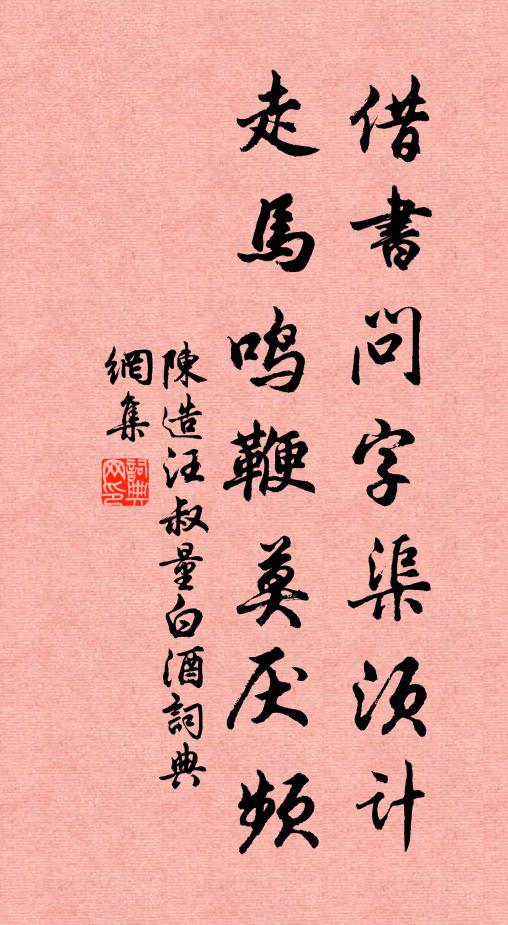 借書問字渠須计
走馬鸣鞭莫厌頻
陳造汪叔量白酒詞典
網集
詞典網印